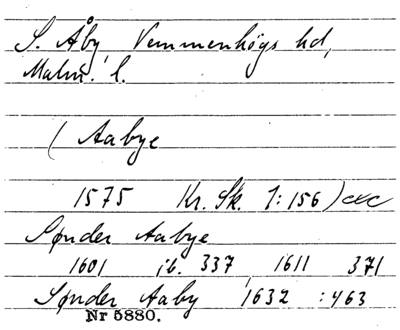 S. Åby, Vemmenhögs hd,
Malm. l.
( Aabye
1575 Kr. Sk. 1:156)
Sønder Aabye
1601 ib. 337 1611 371
Sønder Aaby 1632 :463
Nr 5880.